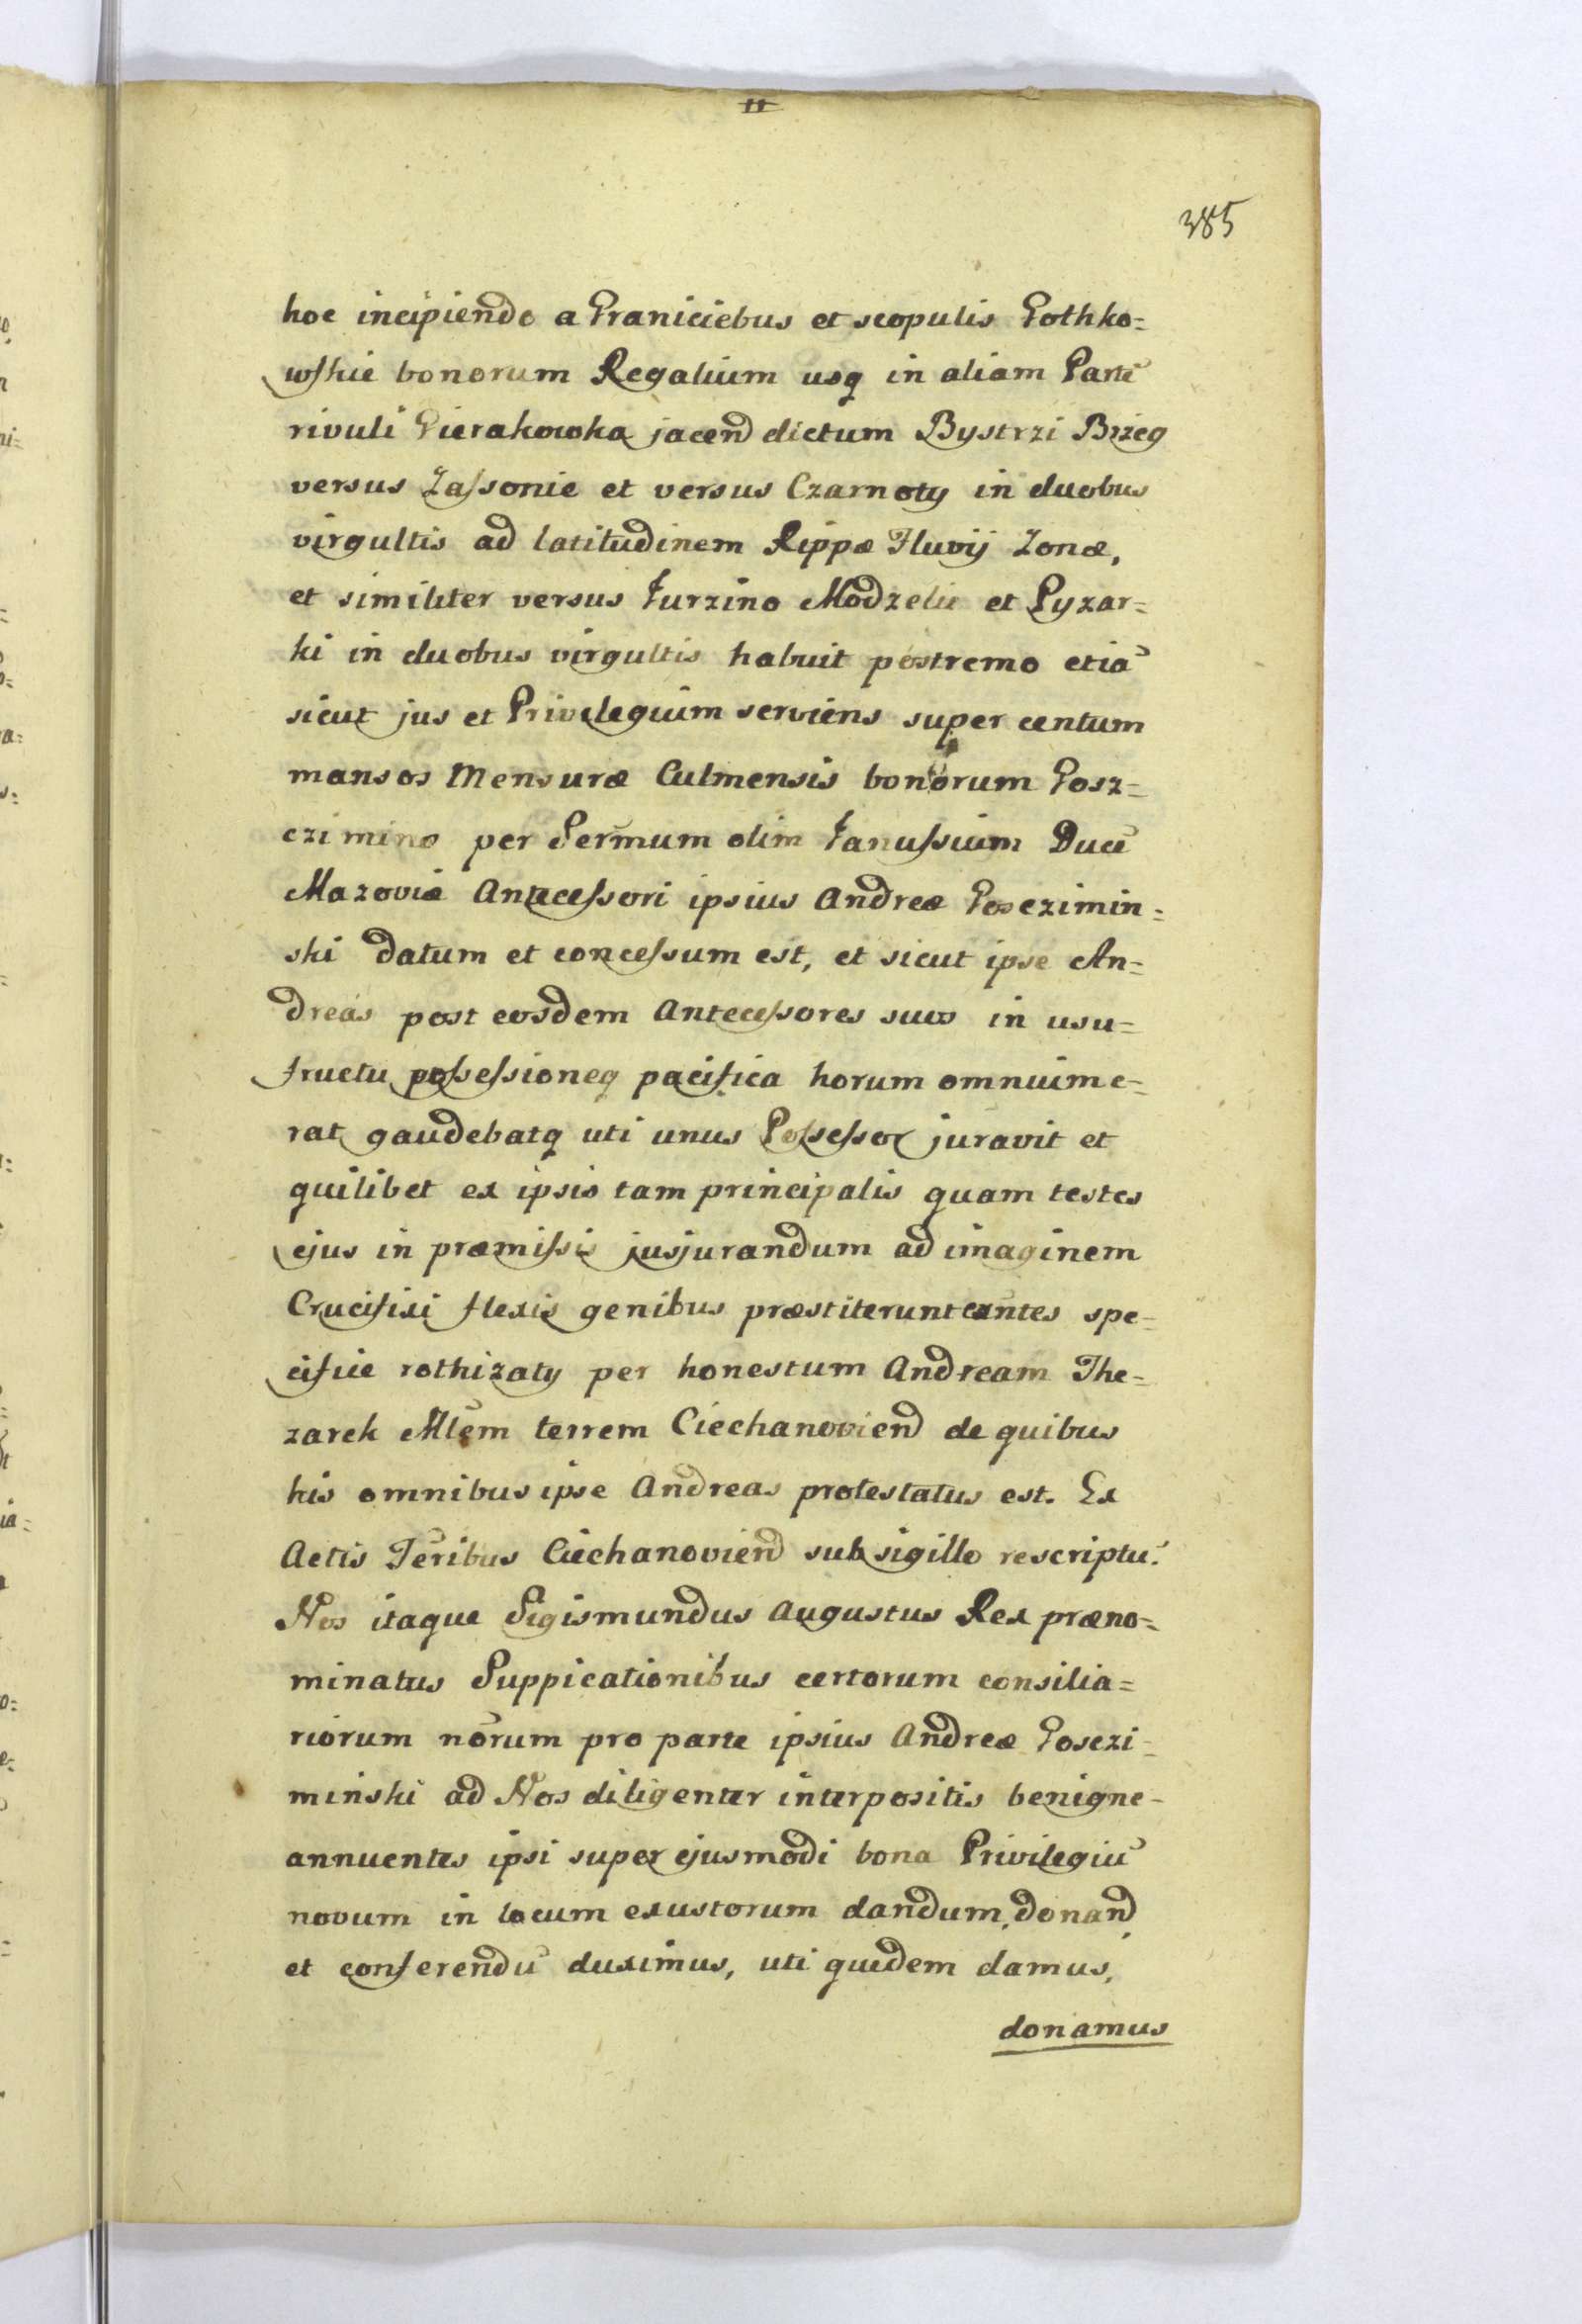 385
hoc incipiendo a Graniciebus et scopulis Gothko=
wskie bonorum Regalium usq in aliam Partē
rivuli Gierakowka jacend dictum Bystrzi Brzeg
versus Lassonie et versus Czarnoty in duobus
virgultis ad latitudinem Rippæ Fluvij Lonæ,
et similiter versus Jurzino Modzelie et Pyzar=
ki in duobus virgultis habuit postremo etiā
sicut jus et Privilegium serviens super centum
mansos Mensuræ Culmensis bonorum Gosz=
czimino per Sermum olim Janussium Ducē
Mazoviæ Antecessori ipsius Andreæ Goszimin=
ski datum et concessum est, et sicut ipse An=
dreas post eosdem Antecessores suos in usu=
fructu possessioneq pacifica horum omnium e=
rat gaudebatq uti unus Possessor juravit et
quilibet ex ipsis tam principalis quam testes
ejus in præmissis jusjurandum ad imaginem
Crucifixi flexis genibus præstiterunt eūntes spe=
cifice rothizaty per honestum Andream The=
zarek Mlēm terrem Ciechanoviend de quibus
his omnibus ipse Andreas protestatus est. Ex
Actis Tēribus Ciechanoviend sub sigillo rescriptū.
Nos itaque Sigismundus Augustus Rex præno=
minatus Suppicationibus certorum consilia=
riorum nōrum pro parte ipsius Andreæ Goszi=
minski ad Nos diligenter interpositis benigne-
annuentes ipsi super ejusmodi bona Privilegiū
novum in locum exustorum dandum, donand,
et conferendū duximus, uti quidem damus,
donamus